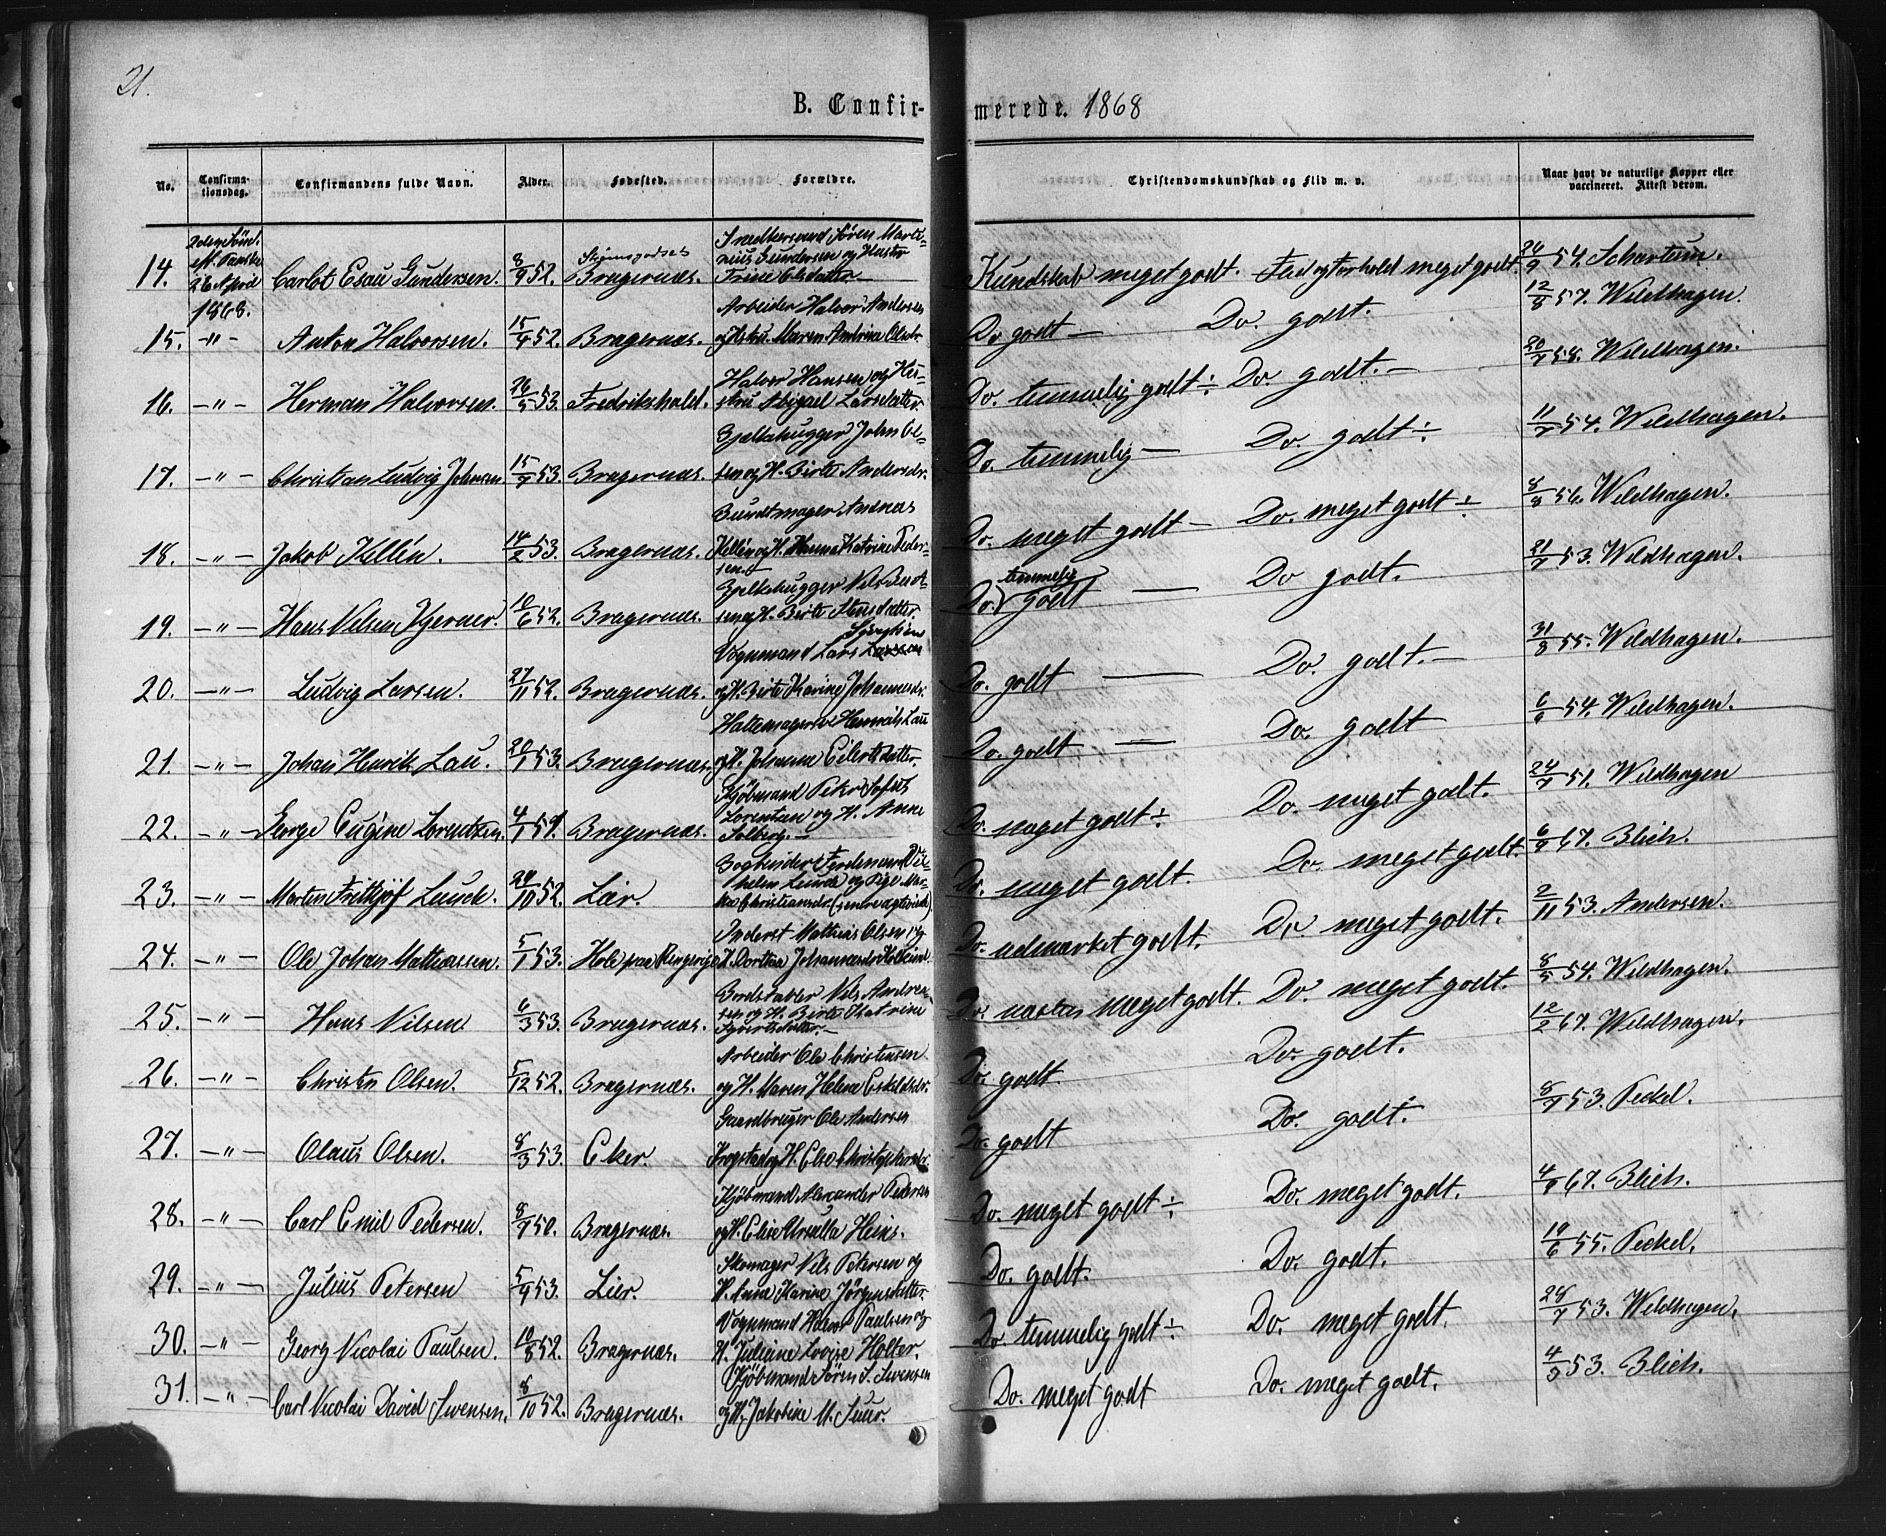 21.
B. Confirmerede. 1868
No. Confirmationsdag. Confirmandens fulde Navn. Alder. Fødested. Forældre. Christendomskundskab og Flid m. v. Naar havt de naturlige Kopper eller vaccineret. Attest derom.
14. 2den Sønd. eft. Paaske 26 April 1868. Carlot Esau Gundersen. 8/9 52. Bragernæs. Snedkersvend Søren Martinius Gundersen og Hustru Trine Olsdatter Kundskab meget godt. Flid og Forhold meget godt. 24/9 54. Schartum.
15. -"- Anton Halvorsen. 15/9 52. Bragernæs. Arbeider Halvor Andersen og Hstru. Maren Andrina Olsdr. Do godt — Do. godt. 12/8 57. Wildhagen.
16. -"- Herman Halvorsen. 26/5 53. Fredrikshald. Halvor Hansen og Hustru Abigael Larsdatter. Do. temmelig godt ÷ Do. godt. — 20/7 58. Wildhagen.
17. -"- Christian Ludvig Johnsen 15/7 53. Bragernæs. Bjelkehugger John Olsen og H. Birte Andersdr. Do. temmelig — Do. godt ÷ 11/7 54. Wildhagen.
18. -"- Jakob Kellén. 14/2 53. Bragernæs. Buntmager Andreas Kellén og H. Hanna Katrine Pedersen. Do. meget godt — Do. meget godt ÷ 8/8 56. Wildhagen.
19. -"- Hans Nilsen Hjerner. 10/6 52. Bragernæs. Bjelkehugger Nils og H. Birte Do. temmelig godt — Do godt. 21/7 53. Wildhagen.
20. -"- Ludvig Larsen. 27/11 52. Bragernæs. Vognmand Lars Larsen og H. Birte Karine Johannesdr. Do. godt — Do. godt. — 31/8 55. Wildhagen.
21. -"- Johan Henrik Lau. 20/1 53. Bragernæs. Hattemagersv. Henrich Lau og H. Johanne Eilertsdatter. Do. godt — Do. godt 6/9 54. Wildhagen.
22. -"- George Eugine Lorentzen. 4/1 54. Bragernæs. Kjøbmand Peter Sofus Lorentzen og H. Anne Solberg. — Do. meget godt ÷ Do. meget godt. 24/7 51. Wildhagen
23. -"- Morten Fritjof Lunde. 20/10 52. Lier. Bogbinder Ferdinand Vilhelm Lunde og Pige Christiansdr. Do. meget godt. Do. meget godt. 6/9 67. Blich.
24. -"- Ole Johan Mathiassen. 5/1 53. Hole paa Ringerige Inderst Mathias Olsen og H. Dorthea Johannesdr. Do. udmærket godt. Do. meget godt. 2/11 53. Andersen.
25. -"- Hans Nilsen 6/3 53. Bragernæs. Bordstabler Nils Andresen og H. Birte Katrine Sjøvertsdatter. — Do. næsten meget godt. Do. meget godt. 8/5 54. Wildhagen.
26. -"- Christen Olsen. 5/12 52. Bragernæs. Arbeider Ole Christensen og H. Maren Helene Eskildsdr. Do. godt. Do. godt. 12/2 67. Wildhagen.
27. -"- Olaus Olsen. 8/3 53. Eker. Gaardbruger Ole Andersen og H. Else Do. godt Do. godt. 8/7 53. Peckel.
28. -"- Carl Emil Pedersen. 8/7 50. Bragernæs. Kjøbmand Alexander Pedersen og H. Elise Ursulla Heins. Do. meget godt ÷ Do. meget godt. 4/9 67. Blich.
29. -"- Julius Petersen 5/9 53. Lier. Skomager Nils Petersen og H. Anne Karine Jørgensdatter. Do. godt. Do. godt. 19/6 55. Peckel.
30. -"- Georg Nicolai Paulsen. 10/8 52. Bragernæs. Vognmand Paulsen og H. Juliane Lovise Holter. Do. temmelig godt ÷ Do. meget godt. 28/7 53. Wildhagen.
31. -"- Carl Nicolai David Svensen. 8/10 52. Bragernæs. Kjøbmand Søren S. Svensen og H. Jakobine M. Suur. Do. meget godt Do. meget godt. 4/9 53. Blich.